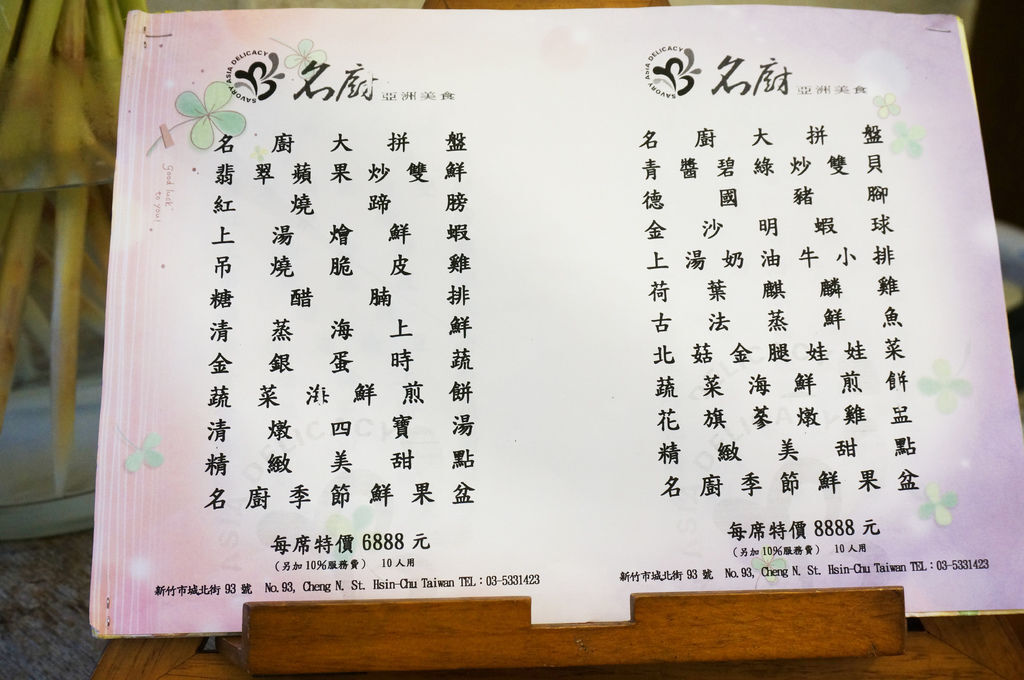 SAVORY ASIA DELICACY
名廚 亞洲美食
good luck
to you!
名廚大拼盤
翡翠蘋果炒雙鮮
紅燒蹄膀
上湯燴鮮蝦
吊燒脆皮雞
糖醋腩排
清蒸海上鮮
金銀蛋時蔬
蔬菜海鮮煎餅
清燉四寶湯
精緻美甜點
名廚季節鮮果盆
每席特價 6888 元
(另加 10%服務費) 10 人用
新竹市城北街 93 號 No. 93, Cheng N. St. Hsin-Chu Taiwan TEL：03-5331423
SAVORY ASIA DELICACY
名廚 亞洲美食
名廚大拼盤
青醬碧綠炒雙貝
德國豬腳
金沙明蝦球
上湯奶油牛小排
荷葉麒麟雞
古法蒸鮮魚
北菇金腿娃娃菜
蔬菜海鮮煎餅
花旗蔘燉雞盅
精緻美甜點
名廚季節鮮果盆
每席特價 8888 元
(另加 10%服務費) 10 人用
新竹市城北街 93 號 No. 93, Cheng N. St. Hsin-Chu Taiwan TEL：03-5331423